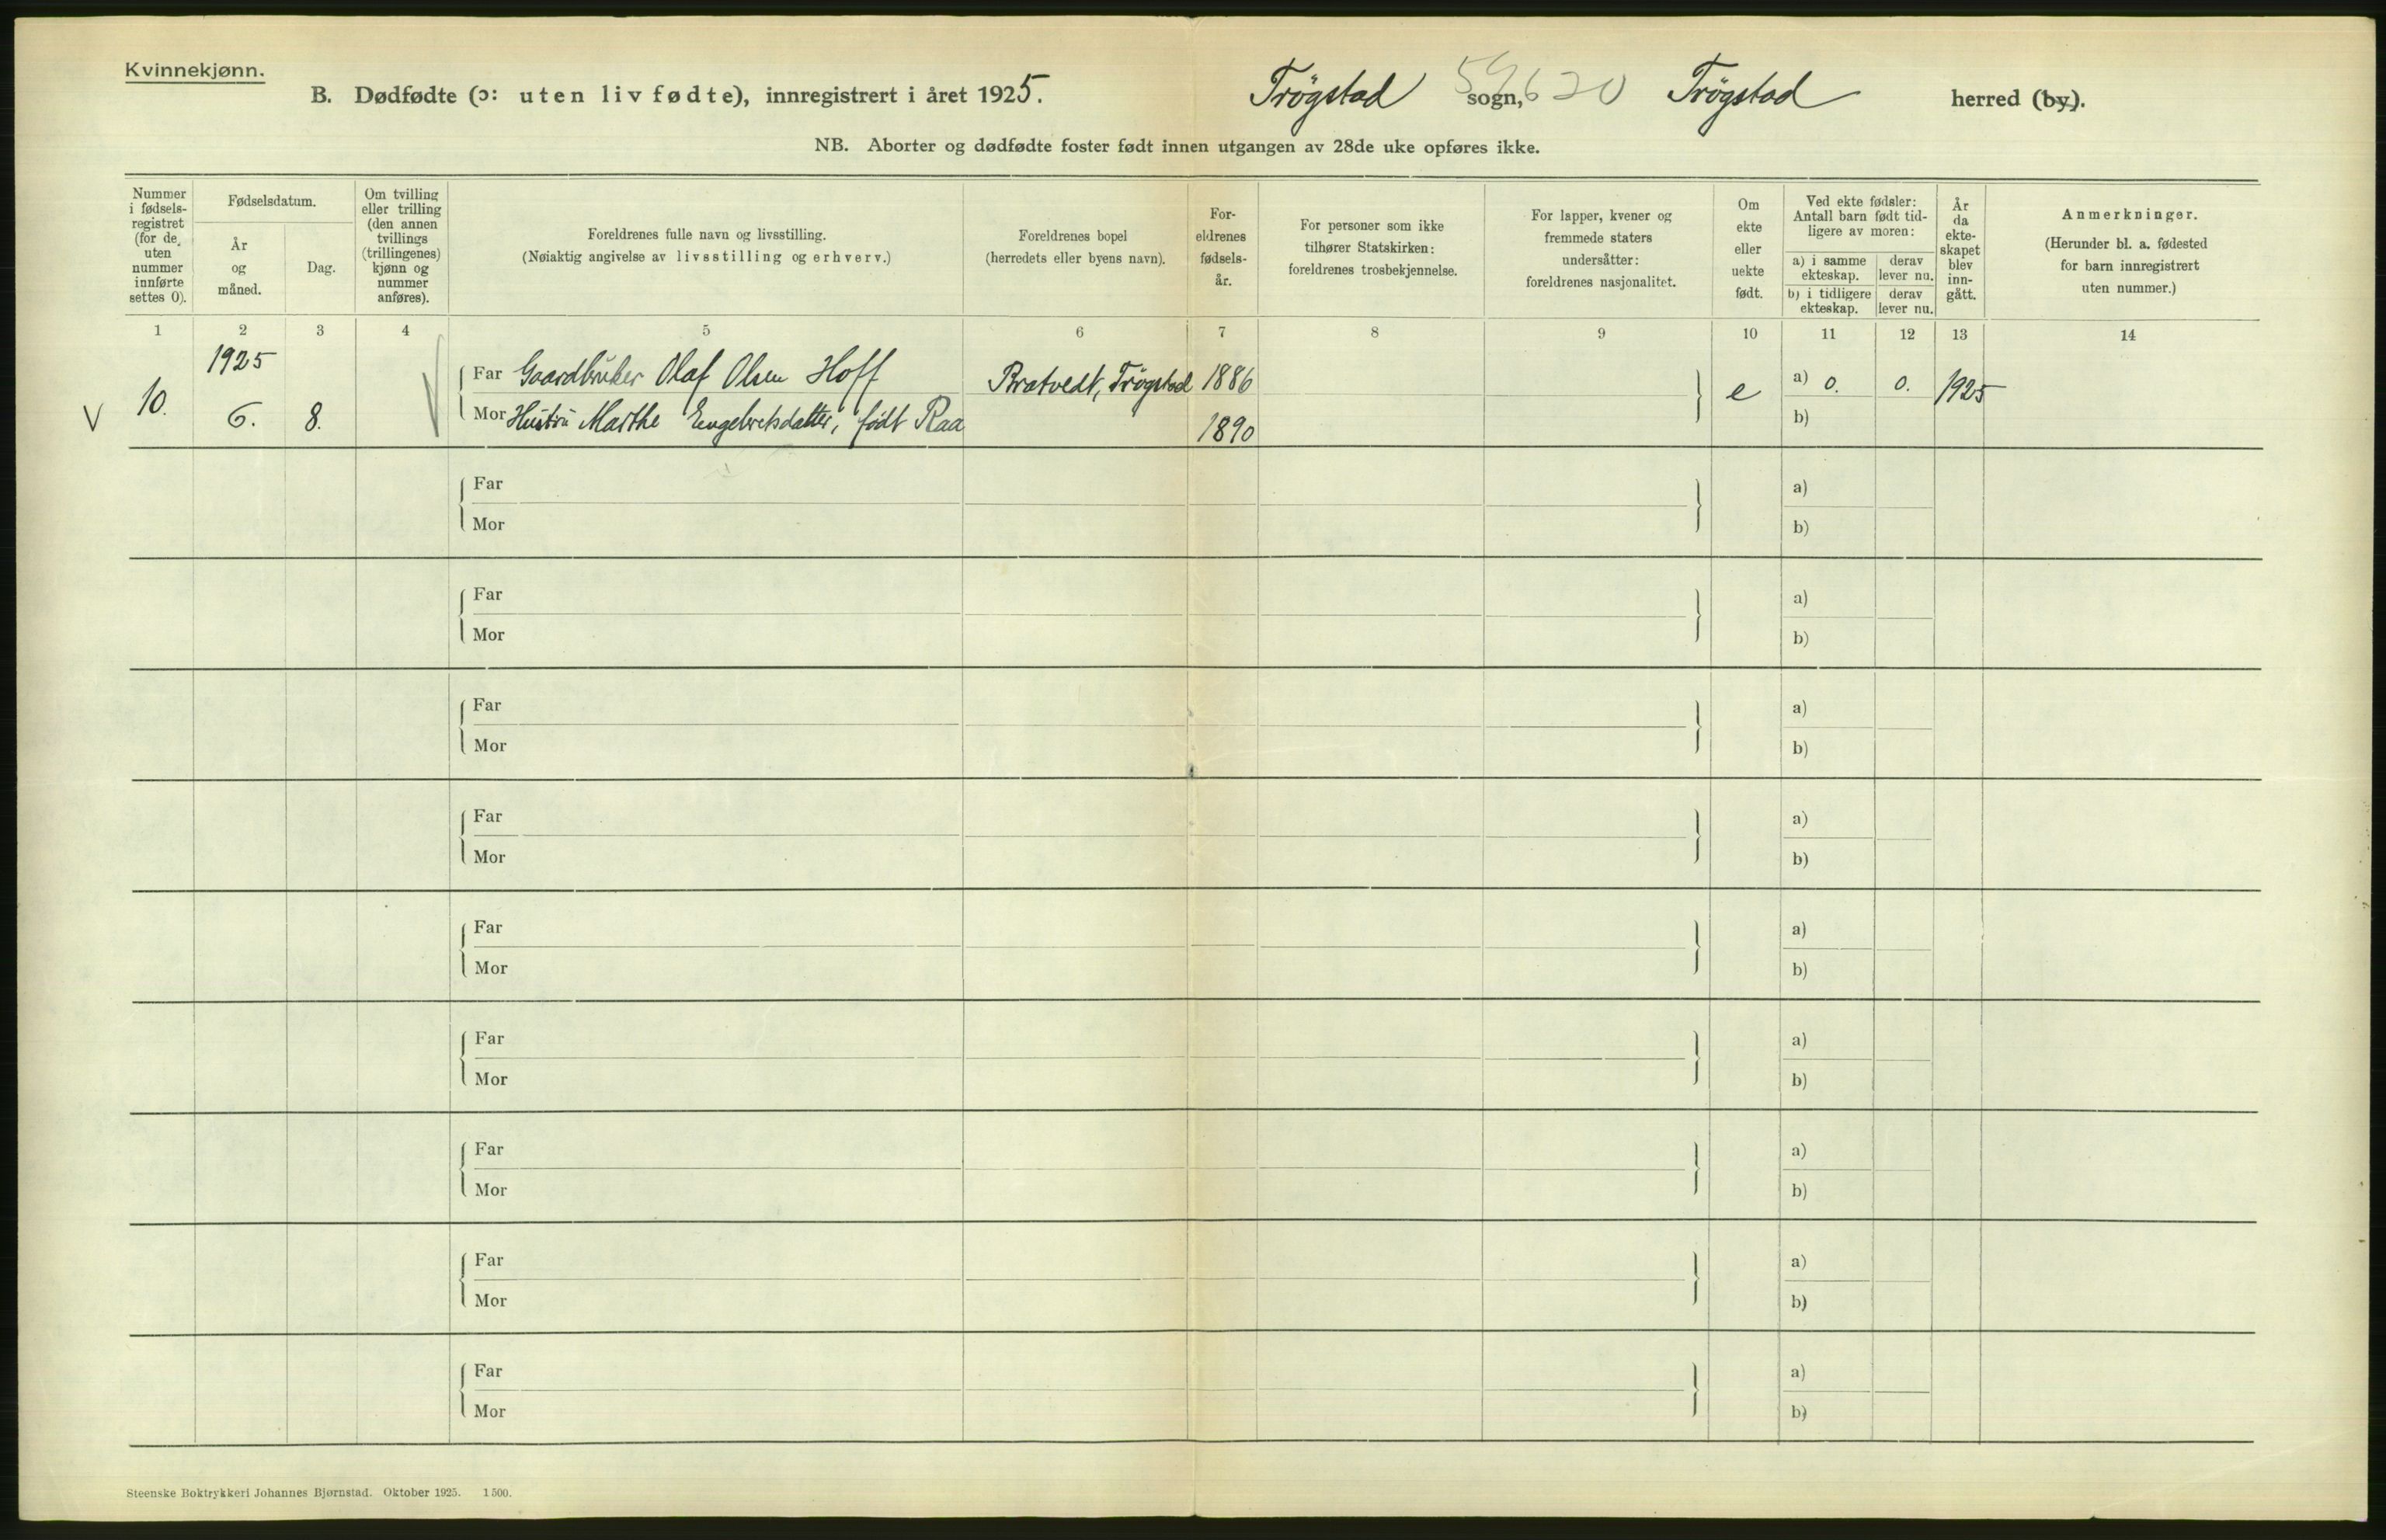 Kvinnekjønn.
B. Dødfødte (ɔ: uten liv fødte), innregistrert i året 1925. Trögstad sogn, Trögstad herred (by).
NB. Aborter og dødfødte foster født innen utgangen av 28de uke opføres ikke.
Nummer
i fødsels-
registret
(for de
uten
nummer
innførte
settes 0).
Fødselsdatum.
År
og
måned.
Dag.
Om tvilling
eller trilling
(den annen
tvillings
(trillingenes)
kjønn og
nummer
anføres).
Foreldrenes fulle navn og livsstilling.
(Nøiaktig angivelse av livsstilling og erhverv.)
Foreldrenes bopel
(herredets eller byens navn).
For-
eldrenes
fødsels-
år.
For personer som ikke
tilhører Statskirken:
foreldrenes trosbekjennelse.
For lapper, kvener og
fremmede staters
undersåtter:
foreldrenes nasjonalitet.
Om
ekte
eller
uekte
født.
Ved ekte fødsler:
Antall barn født tid-
ligere av moren:
a) i samme
ekteskap.
derav
lever nu.
b) i tidligere
ekteskap.
derav
lever nu.
År
da
ekte-
skapet
blev
inn-
gått.
Anmerkninger.
(Herunder bl. a. fødested
for barn innregistrert
uten nummer.)
1 2 3 4 5 6 7 8 9 10 11 12 13 14
1925
V 10. 6. 8.
Far Gaardbruker Olaf Olsen Hoff Bratvedt, Trögstad 1886 e a) 0. 0. 1925
Mor Hustru Marthe Engebretsdatter, født Raa 1890 b)
Far a)
Mor b)
Far a)
Mor b)
Far a)
Mor b)
Far a)
Mor b)
Far a)
Mor b)
Far a)
Mor b)
Far a)
Mor b)
Far a)
Mor b)
Far a)
Mor b)
Steenske Boktrykkeri Johannes Bjørnstad. Oktober 1925. 1500.